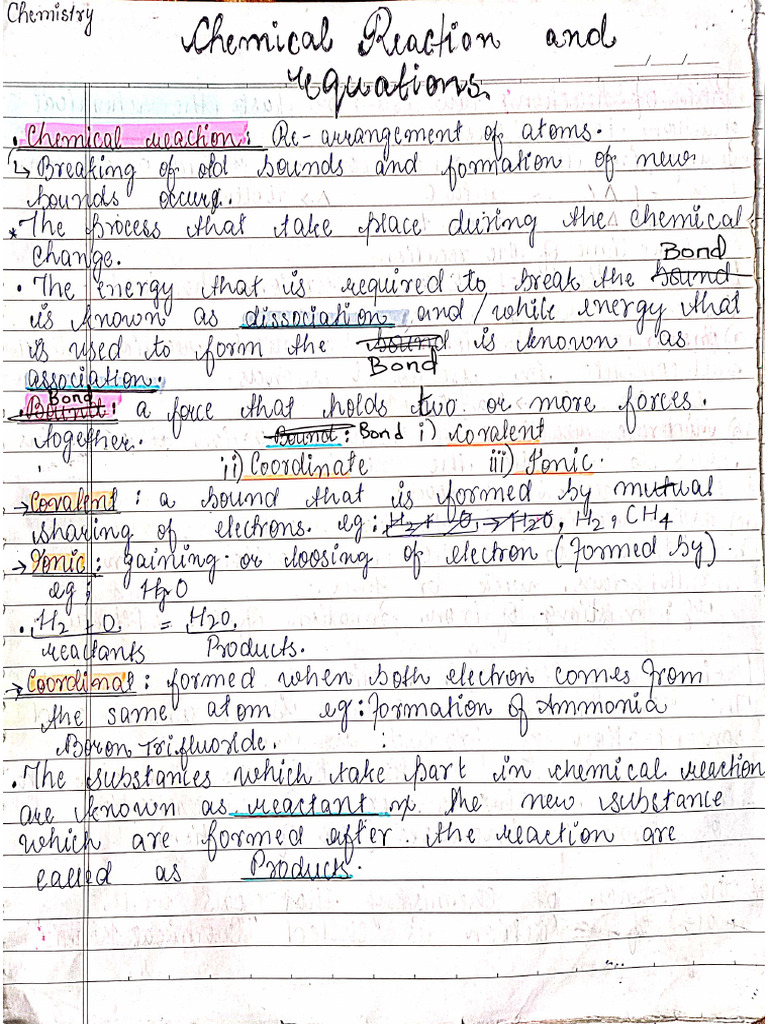 Chemistry
Chemical Reaction and
equations.
• Chemical reaction: Re-arrangement of atoms.
↳ Breaking of old bounds and formation of new
bounds occurs.
* The process that take place during the chemical
change.
Bond
• The energy that is required to break the bound
is known as dissociation and/while energy that
is used to form the bound is known as
Bond
association.
Bond
• Bound: a force that holds two or more forces.
together. Bound: Bond i) Covalent
ii) Coordinate iii) Ionic.
→ Covalent: a bound that is formed by mutual
sharing of electrons. eg: H2 + O, → H2O, H2, CH4
→ Ionic: gaining or loosing of electron (formed by).
eg: H2O
• H2 + O, = H2O,
reactants Products.
→ Coordinat: formed when both electron comes from
the same atom eg: Formation of Ammonia
Boron Trifluoride.
• The substances which take part in chemical reaction
are known as reactant the new substance
which are formed after the reaction are
called as Products.